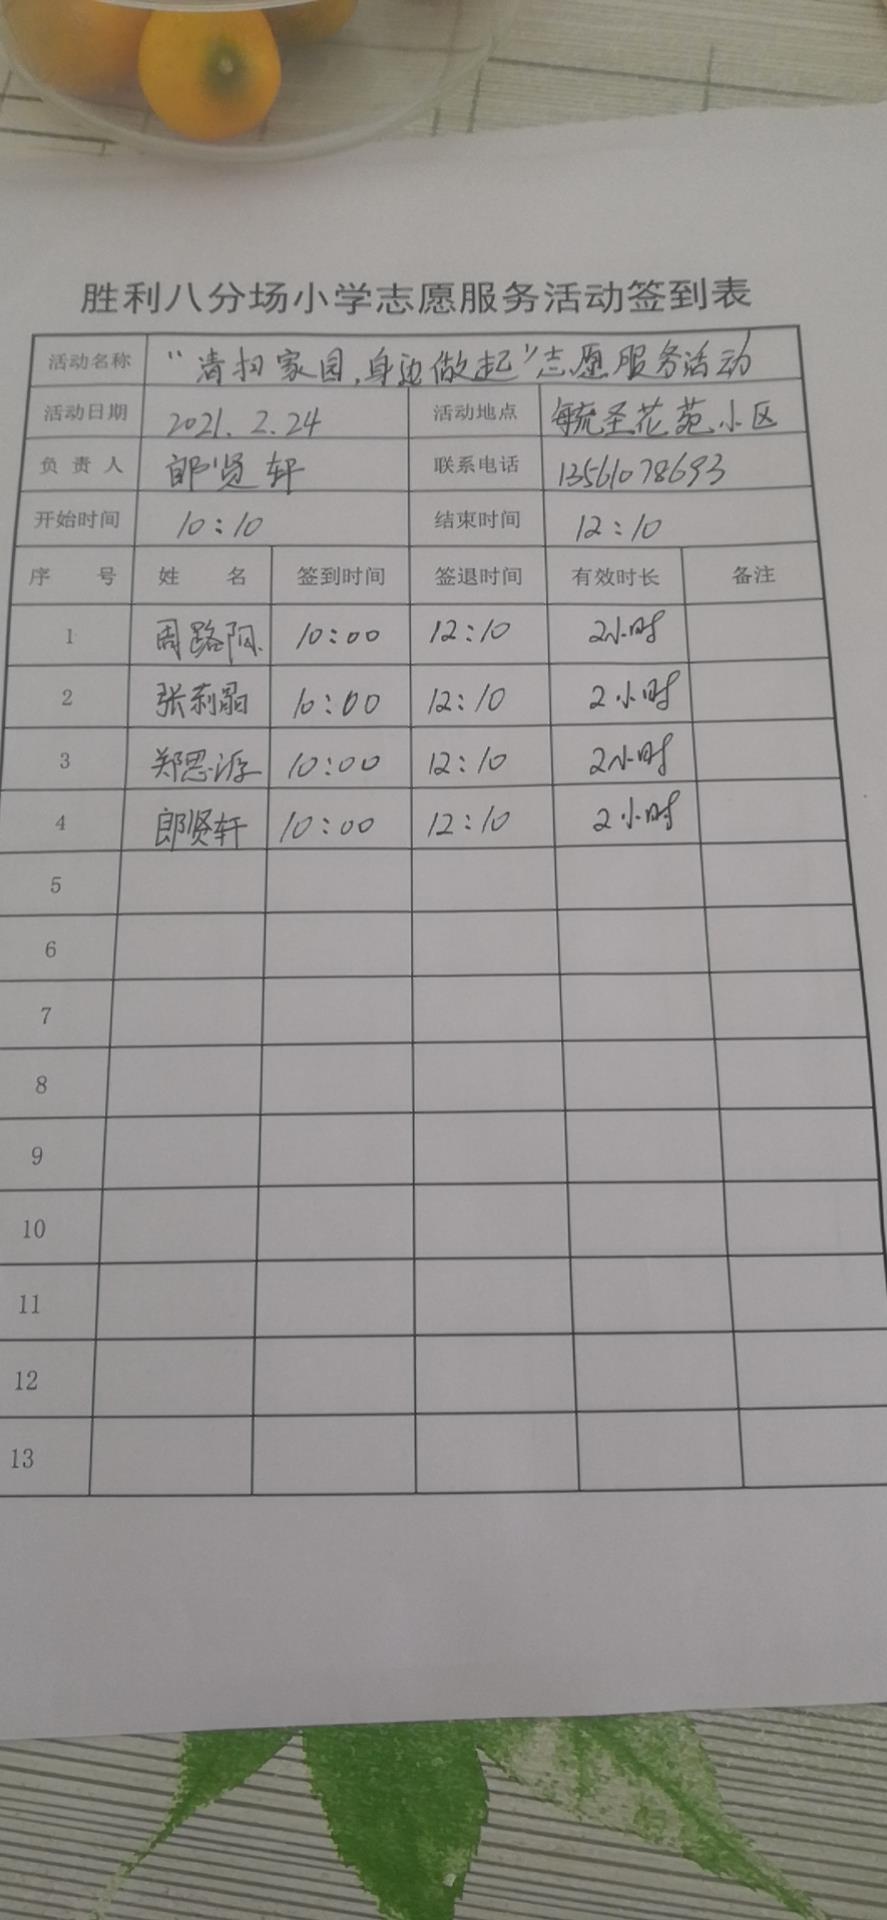 胜利八分场小学志愿服务活动签到表
活动名称 “清扫家园,身边做起”志愿服务活动
活动日期 2021.2.24 活动地点 毓圣花苑小区
负责人 郎贤轩 联系电话 13561078693
开始时间 10:10 结束时间 12:10
序号 姓名 签到时间 签退时间 有效时长 备注
1 周路阳 10:00 12:10 2小时
2 张莉晶 10:00 12:10 2小时
3 郑思源 10:00 12:10 2小时
4 郎贤轩 10:00 12:10 2小时
5
6
7
8
9
10
11
12
13